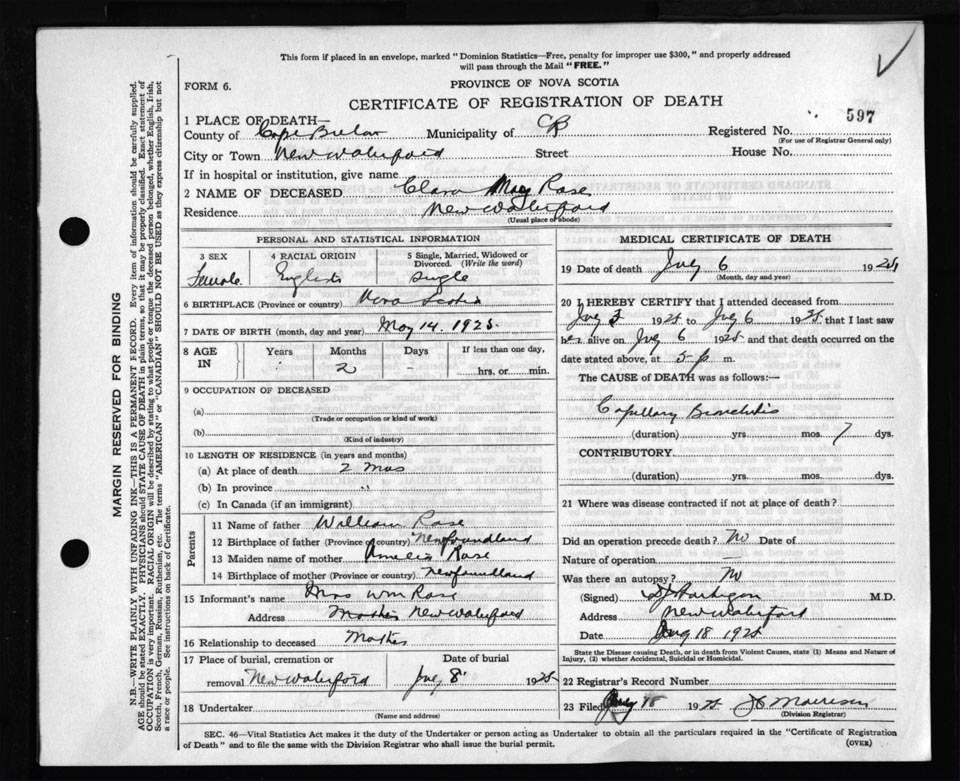 This form if placed in an envelope, marked "Dominion Statistics—Free, penalty for improper use $300," and properly addressed
will pass through the Mail "FREE."
FORM 6.
PROVINCE OF NOVA SCOTIA
CERTIFICATE OF REGISTRATION OF DEATH
597
1 PLACE OF DEATH—
County of Cape Breton Municipality of CB Registered No.
(For use of Registrar General only)
City or Town New Waterford Street House No.
If in hospital or institution, give name
2 NAME OF DECEASED Clara May Rose
Residence New Waterford
(Usual place of abode)
PERSONAL AND STATISTICAL INFORMATION
3 SEX 4 RACIAL ORIGIN 5 Single, Married, Widowed or Divorced. (Write the word)
Female English Single
6 BIRTHPLACE (Province or country) Nova Scotia
7 DATE OF BIRTH (month, day and year) May 14. 1925.
8 AGE IN Years Months Days If less than one day,
2 hrs. or min.
9 OCCUPATION OF DECEASED
(a)
(Trade or occupation or kind of work)
(b)
(Kind of industry)
10 LENGTH OF RESIDENCE (in years and months)
(a) At place of death 2 mos
(b) In province "
(c) In Canada (if an immigrant)
Parents
11 Name of father William Rose
12 Birthplace of father (Province or country) Newfoundland
13 Maiden name of mother Amelia Rose
14 Birthplace of mother (Province or country) Newfoundland
15 Informant's name Mrs Wm Rose
Address New Waterford
16 Relationship to deceased Mother
17 Place of burial, cremation or Date of burial
removal New Waterford 8 1925
18 Undertaker
(Name and address)
MEDICAL CERTIFICATE OF DEATH
19 Date of death 6 1925
(Month, day and year)
20 I HEREBY CERTIFY that I attended deceased from
1925 to 6 1925 that I last saw
her alive on 6 1925 and that death occurred on the
date stated above, at 5 p m.
The CAUSE of DEATH was as follows:—
Capillary Bronchitis
(duration) yrs. mos. 7 dys.
CONTRIBUTORY
(duration) yrs. mos. dys.
21 Where was disease contracted if not at place of death?
Did an operation precede death? No Date of
Nature of operation —
Was there an autopsy? No
(Signed) M.D.
Address New Waterford
Date 18 1925
State the Disease causing Death, or in death from Violent Causes, state (1) Means and Nature of
Injury, (2) whether Accidental, Suicidal or Homicidal.
22 Registrar's Record Number
23 Filed 18 1925 Morrison
(Division Registrar)
SEC. 46—Vital Statistics Act makes it the duty of the Undertaker or person acting as Undertaker to obtain all the particulars required in the "Certificate of Registration
of Death" and to file the same with the Division Registrar who shall issue the burial permit.
(OVER)
MARGIN RESERVED FOR BINDING
N.B.—WRITE PLAINLY, WITH UNFADING INK—THIS IS A PERMANENT RECORD. Every item of information should be carefully supplied.
AGE should be stated EXACTLY. PHYSICIANS should STATE CAUSE OF DEATH in plain terms, so that it may be properly classified. Exact statement of
OCCUPATION is very important. RACIAL ORIGIN will be described by stating to what people or tongue the deceased person belonged, whether English, Irish,
Scotch, French, German, Russian, Ruthenian, etc. The terms "AMERICAN" or "CANADIAN" SHOULD NOT BE USED as they express citizenship but not
a race or people. See instructions on back of Certificate.